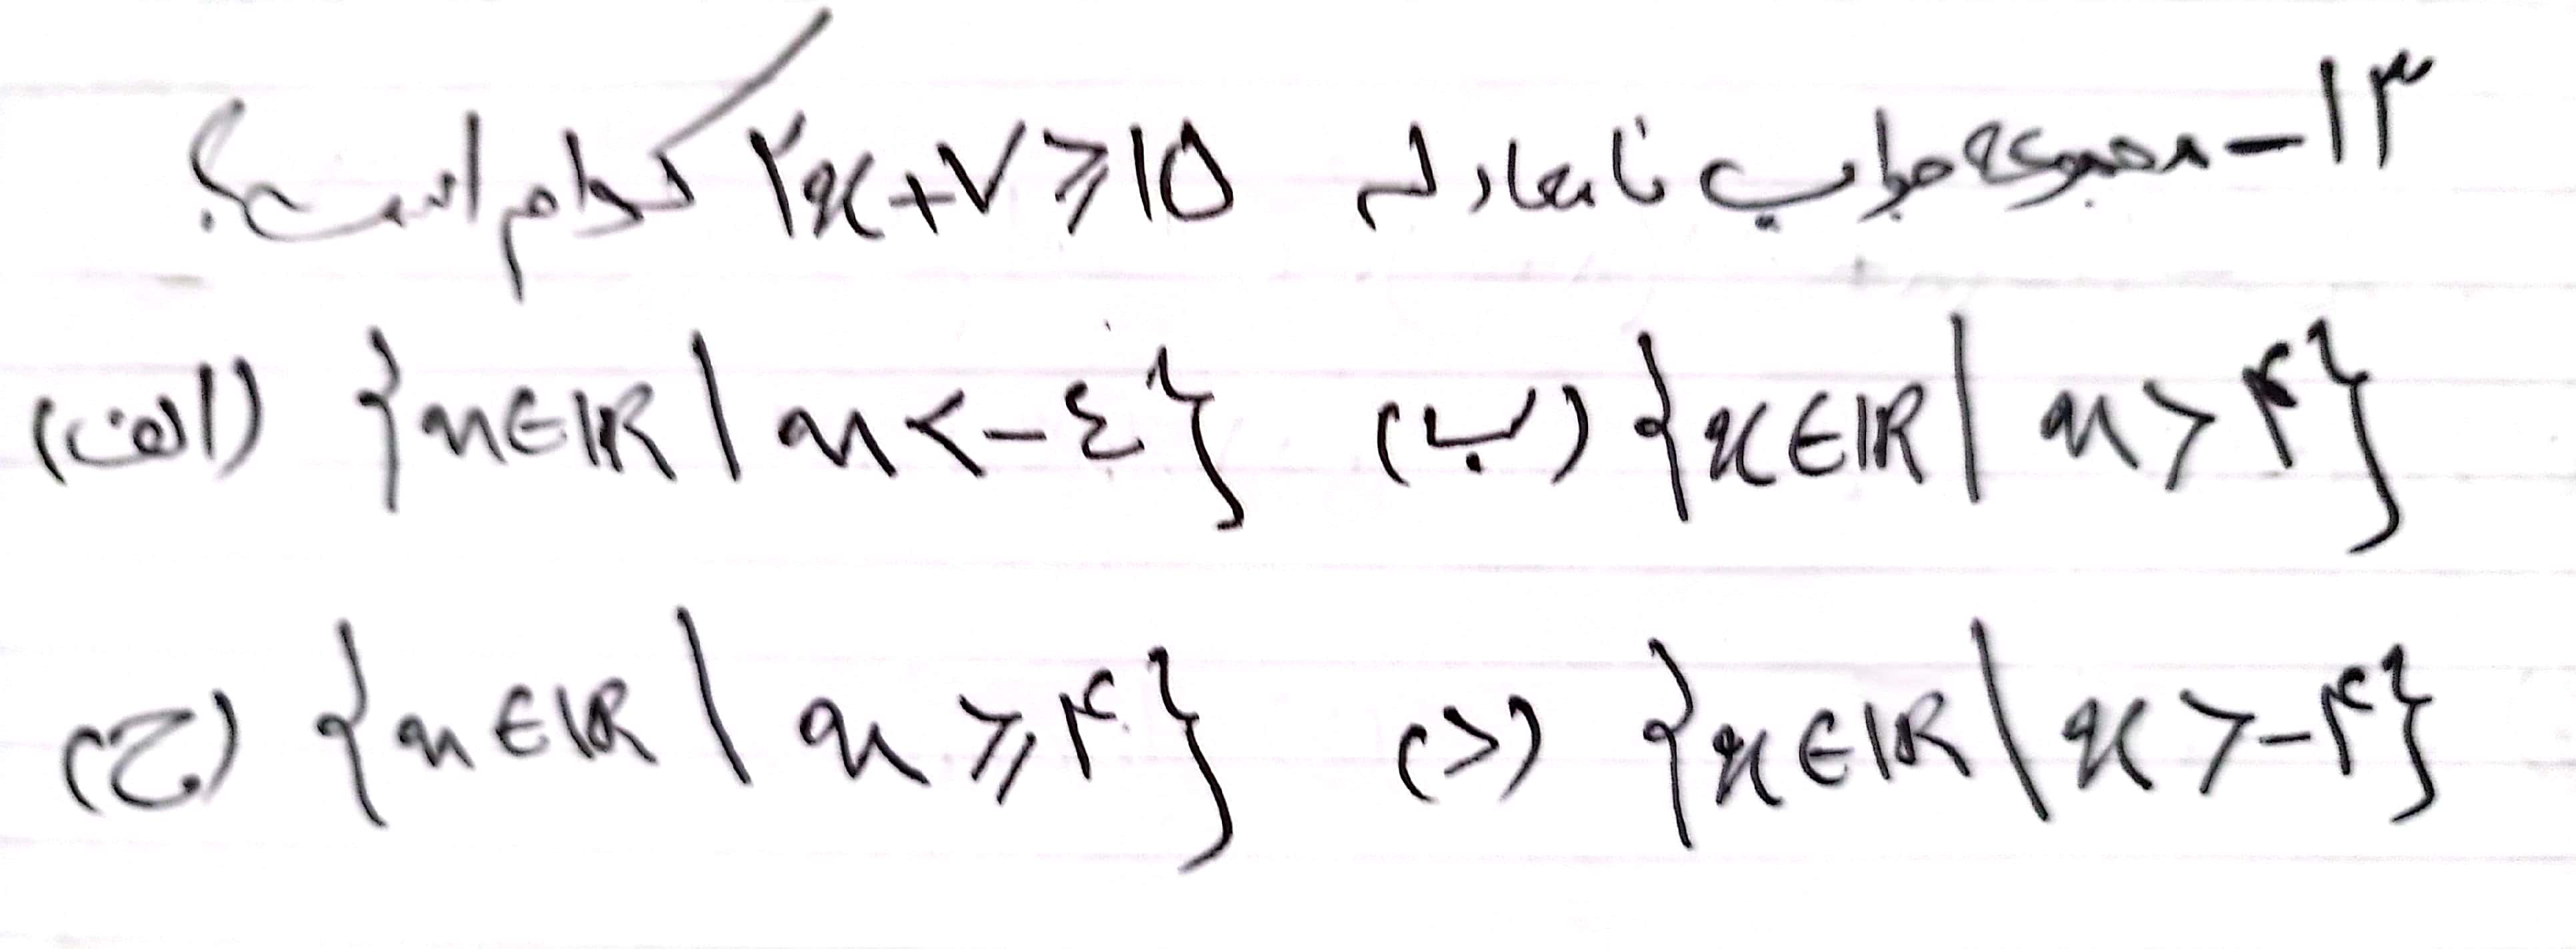 ۱۳- مجموعه جواب نامعادله ۲x+۷⩾۱۵ کدام است؟
(الف) {x∈ℝ | x<-٤} (ب) {x∈ℝ | x>۴}
(ج) {x∈ℝ | x⩾۴} (د) {x∈ℝ | x>-۴}